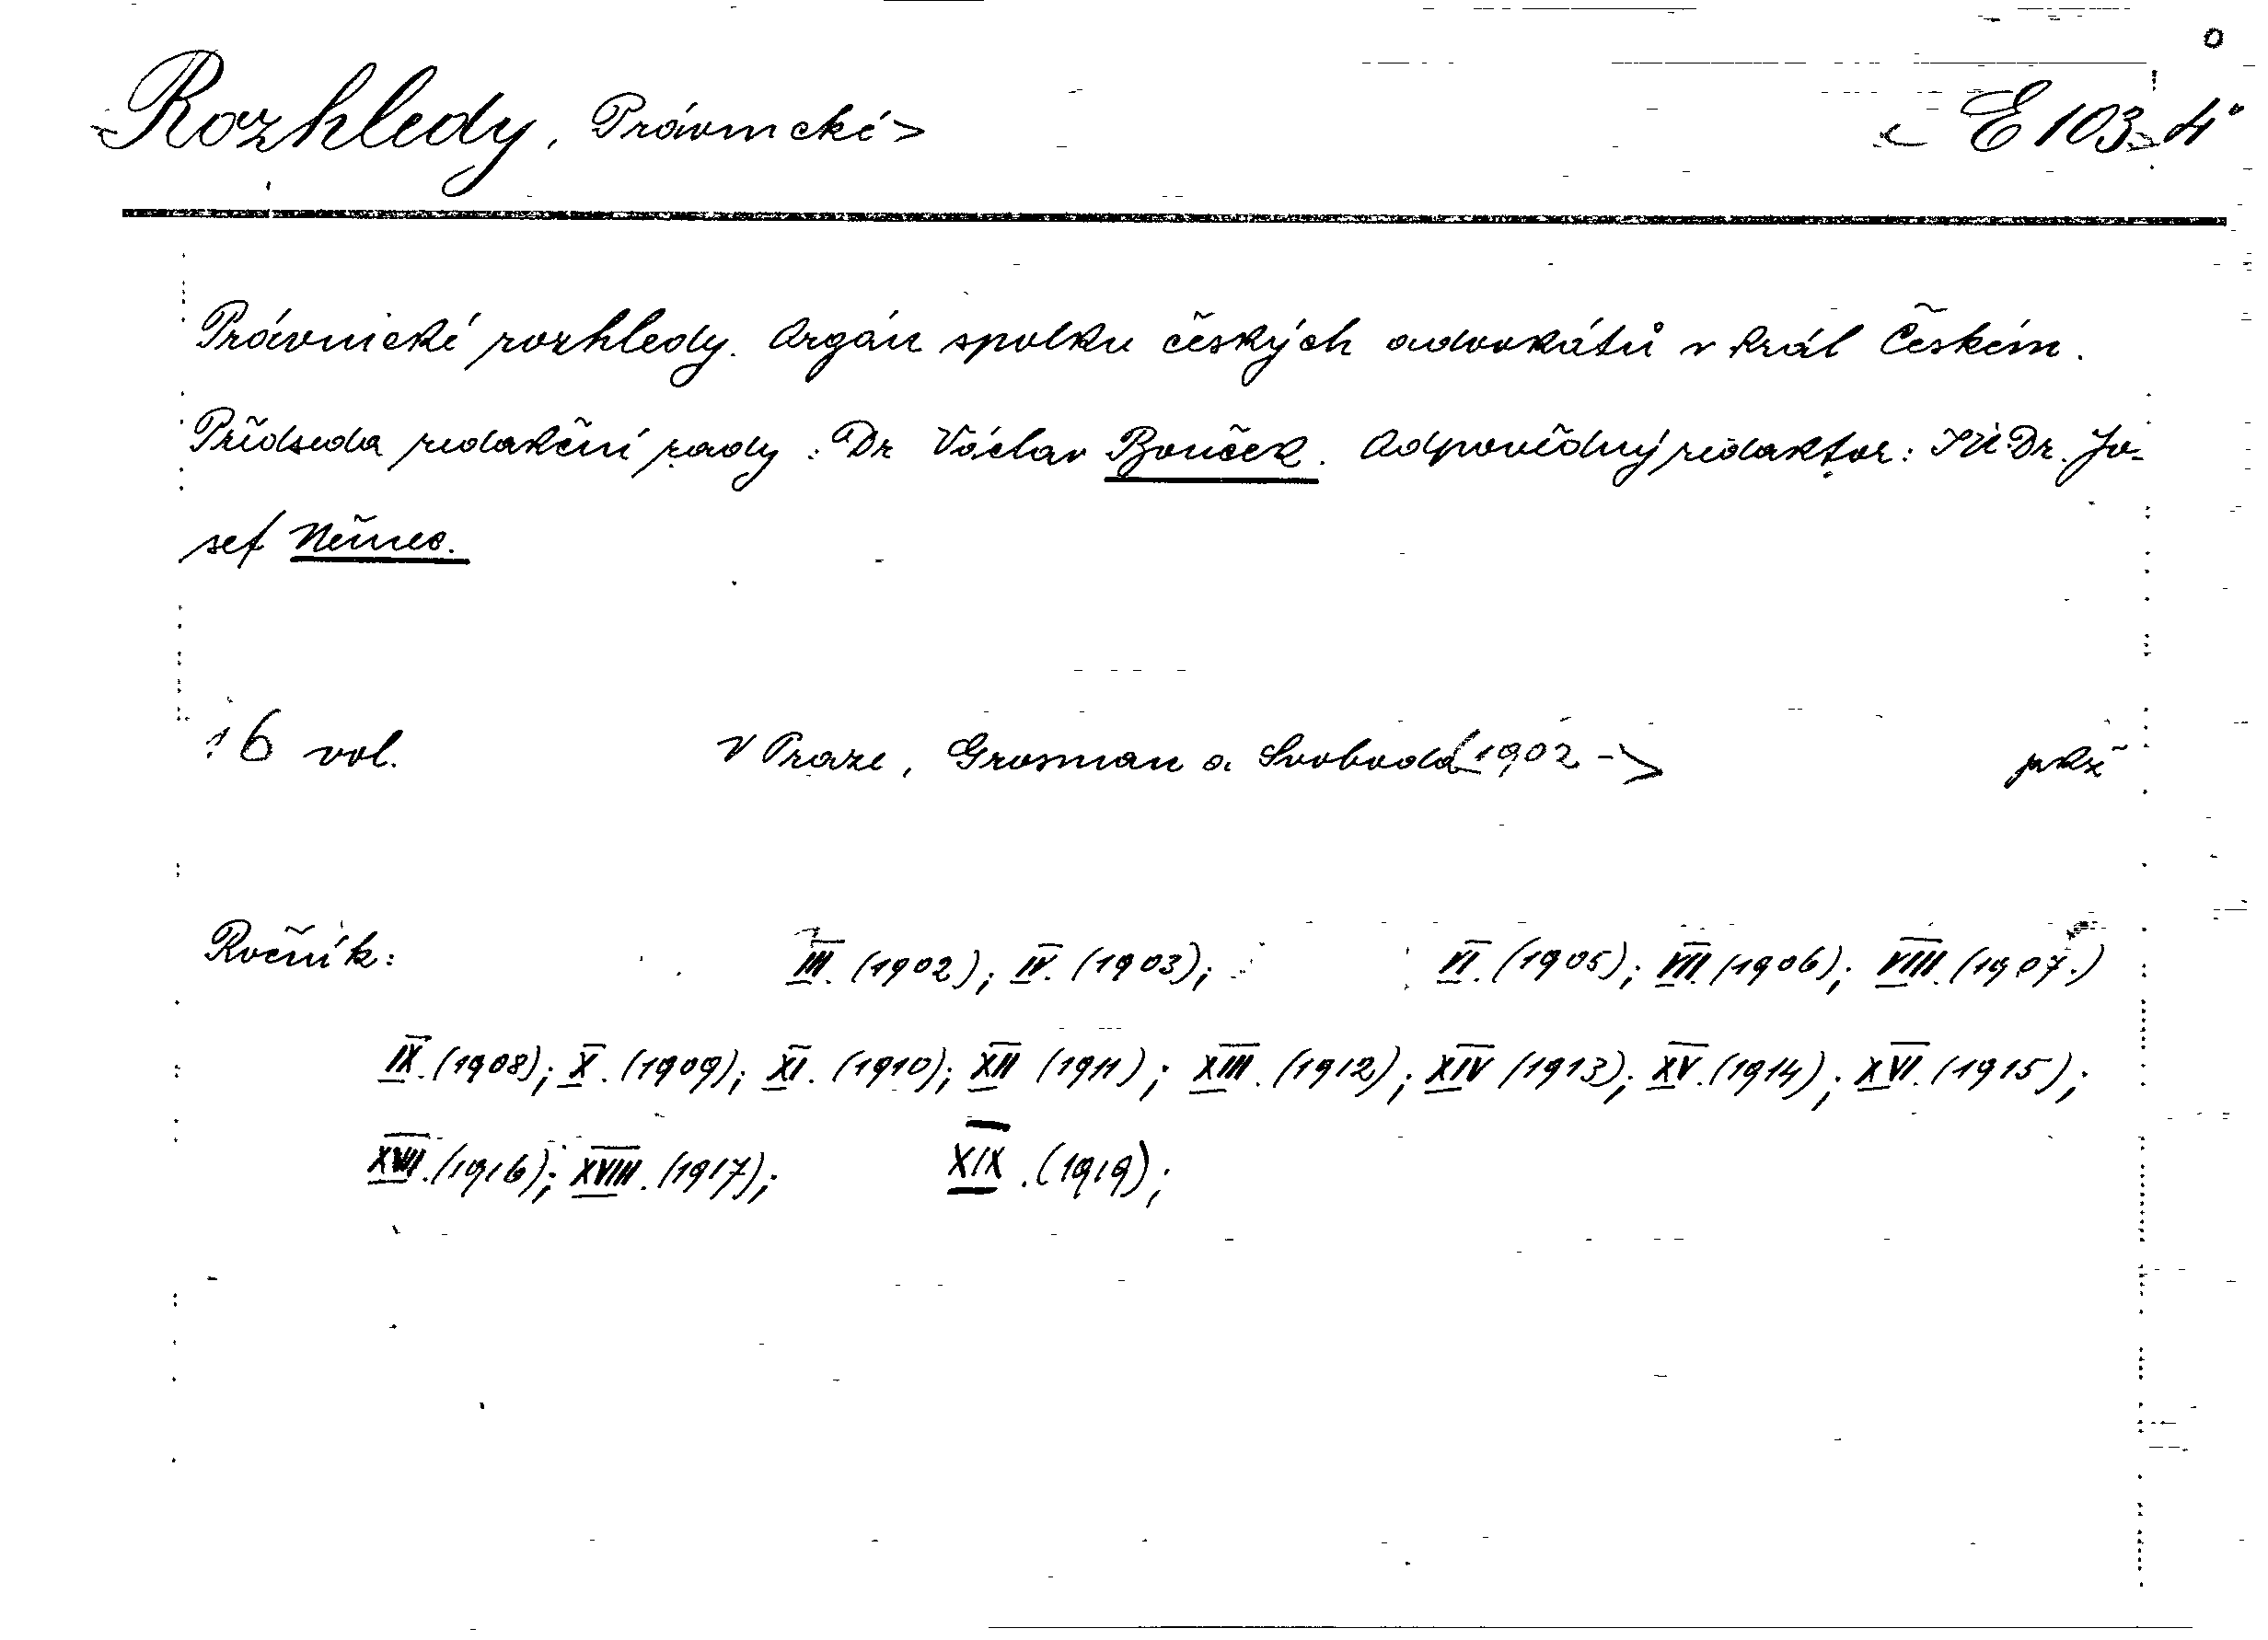 Rozhledy, Právnické > < E 103 > 4°
Právnické rozhledy. Orgán spolku českých advokátů v král Českém.
Předseda redakční rady: Dr Václav Bouček. Odpovědný redaktor: JU Dr. Jo-
sef Němec.
16 vol. V Praze, Grosman a Svoboda 1902 -> pkž
Ročník: III. (1902); IV. (1903); VI. (1905); VII. (1906); VIII. (1907.)
IX. (1908); X. (1909); XI. (1910); XII (1911); XIII. (1912); XIV (1913); XV. (1914); XVI. (1915);
XVII. (1916); XVIII. (1917); XIX. (1919);